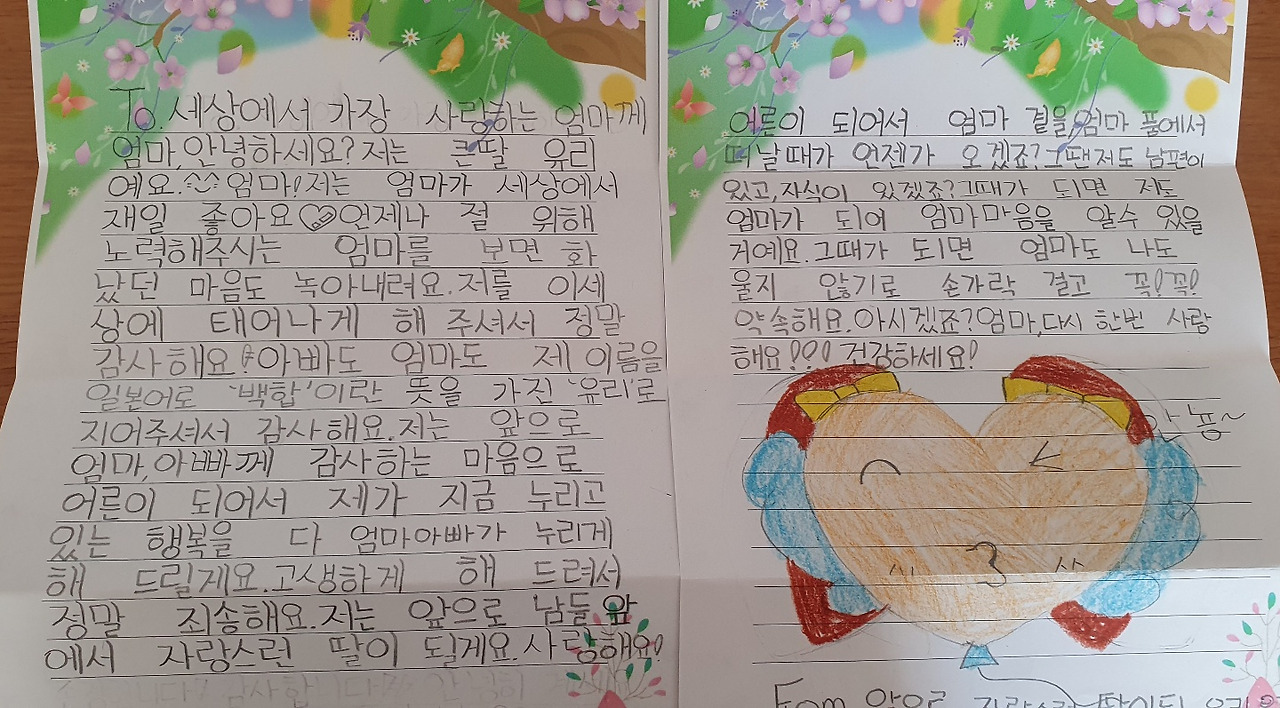 To. 세상에서 가장 사랑하는 엄마께
엄마, 안녕하세요? 저는 큰딸 유리
예요. 엄마! 저는 엄마가 세상에서
재일 좋아요 언제나 절 위해
노력해주시는 엄마를 보면 화
났던 마음도 녹아내려요. 저를 이세
상에 태어나게 해 주셔서 정말
감사해요! 아빠도 엄마도 제 이름을
일본어로 '백합'이란 뜻을 가진 '유리'로
지어주셔서 감사해요. 저는 앞으로
엄마, 아빠께 감사하는 마음으로
어른이 되어서 제가 지금 누리고
있는 행복을 다 엄마아빠가 누리게
해 드릴게요. 고생하게 해 드려서
정말 죄송해요. 저는 앞으로 남들 앞
에서 자랑스런 딸이 될게요. 사랑해요!
어른이 되어서 엄마 곁을, 엄마 품에서
떠날때가 언젠가 오겠죠? 그땐 저도 남편이
있고, 자식이 있겠죠? 그때가 되면 저도
엄마가 되어 엄마마음을 알수 있을
거예요. 그때가 되면 엄마도 나도
울지 않기로 손가락 걸고 꼭! 꼭!
약속해요. 아시겠죠? 엄마, 다시 한번 사랑
해요!!! 건강하세요!
안뇽~
From 앞으로 자랑스런 딸이 될 유리